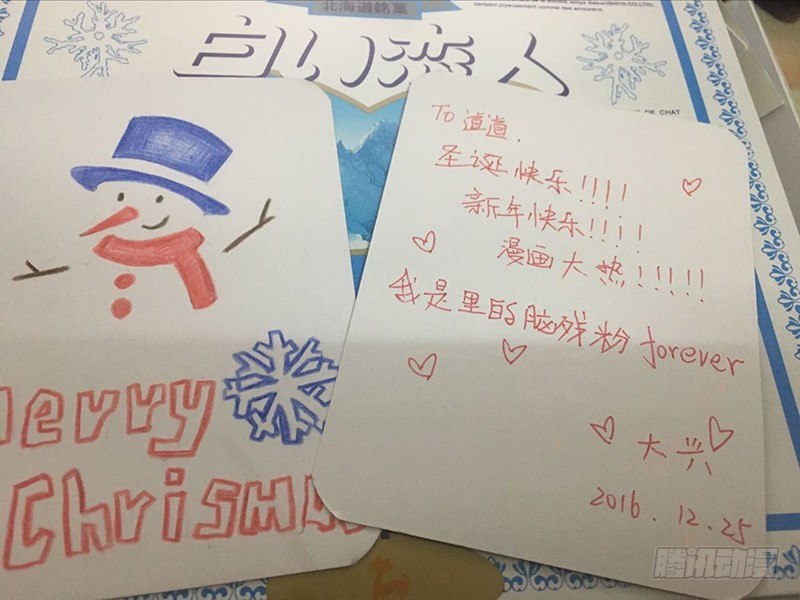 北海道銘菓
DE CHAT
Merry
Chrism
To 道道,
圣诞快乐!!!!
新年快乐!!!!
漫画大热!!!!!
我是里的脑残粉 forever
大兴
2016.12.25
腾讯动漫